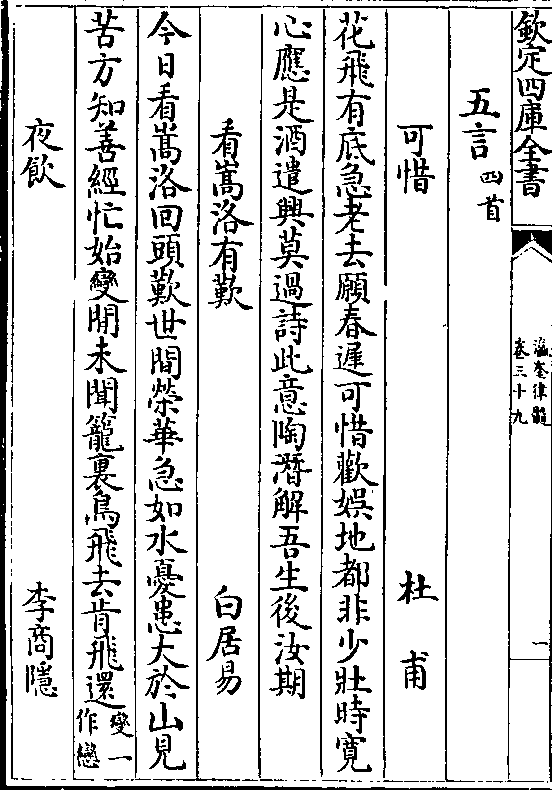 欽定四庫全書
瀛奎律髓
卷三十九
一
五言四首
可惜 杜甫
花飛有底急老去願春遲可惜歡娛地都非少壯時寛
心應是酒遣興莫過詩此意陶潛解吾生後汝期
看嵩洛有歎 白居易
今日看嵩洛回頭歎世間榮華急如水憂患大於山見
苦方知善經忙始變閒未聞籠裏鳥飛去肯飛還變一作戀
夜飲 李商隱